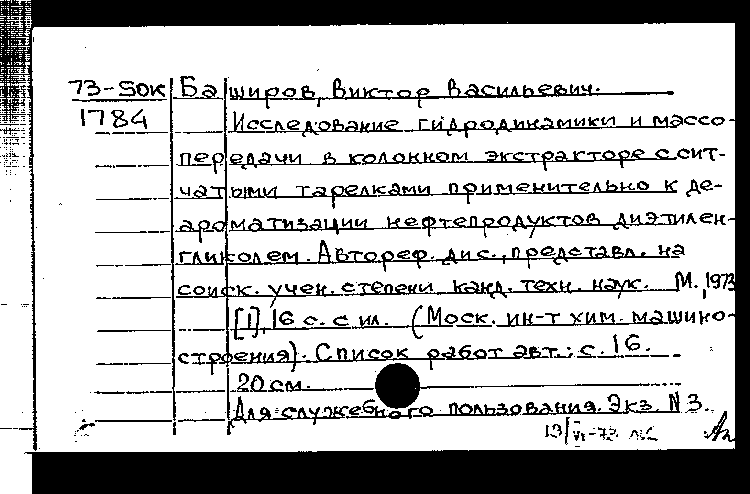 73-SOK Баширов, Виктор Васильевич.
1784 Исследование гидродинамики и массо-
передачи в колонном экстракторе с сит-
чатыми тарелками применительно к де-
ароматизации нефтепродуктов диэтилен-
гликолем. Автореф. дис., представл. на
соиск. учен. степени канд. техн. наук. М., 1973
[1], 16 с. с ил. (Моск. ин-т хим. машино-
строения). Список работ авт.: с. 16.
20 см.
Для служебного пользования. Экз. N 3.
19/VI-73